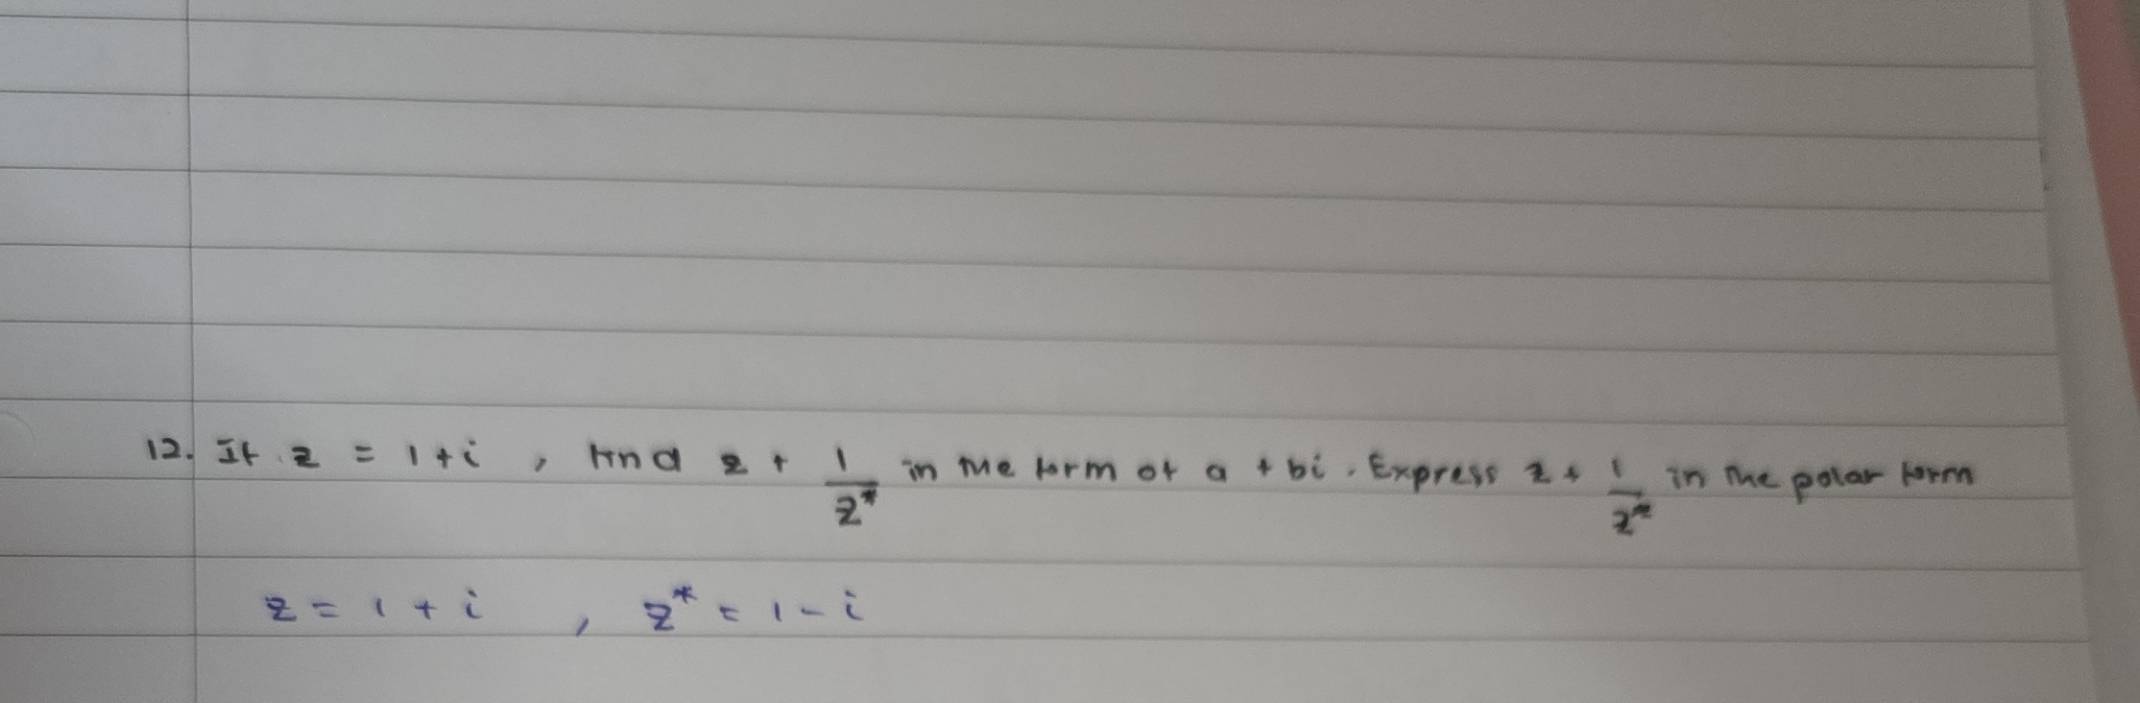 12. If z = 1 + i , find z + 1/z* in the form of a + bi . Express z + 1/z* in the polar form
z = 1 + i , z* = 1 - i